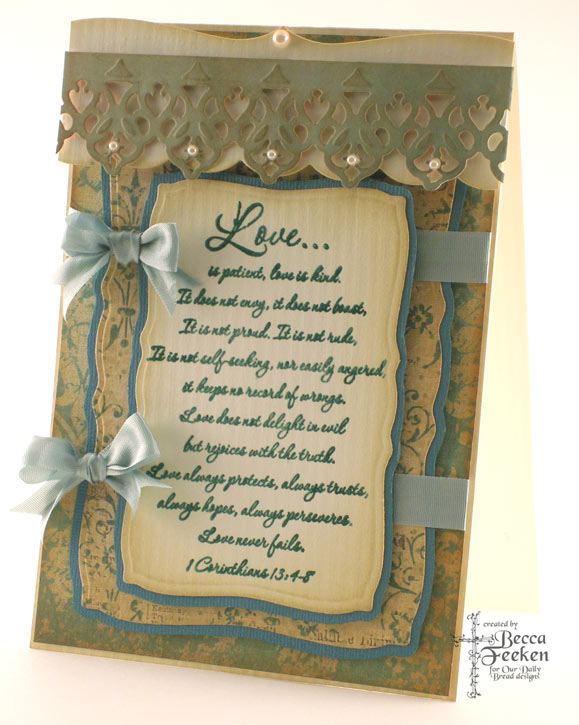 Love...
is patient, love is kind.
It does not envy, it does not boast,
It is not proud. It is not rude,
It is not self-seeking, nor easily angered,
it keeps no record of wrongs.
Love does not delight in evil
but rejoices with the truth.
Love always protects, always trusts,
always hopes, always perseveres.
Love never fails.
1 Corinthians 13:4-8
created by
Becca
Feeken
for Our Daily
Bread designs